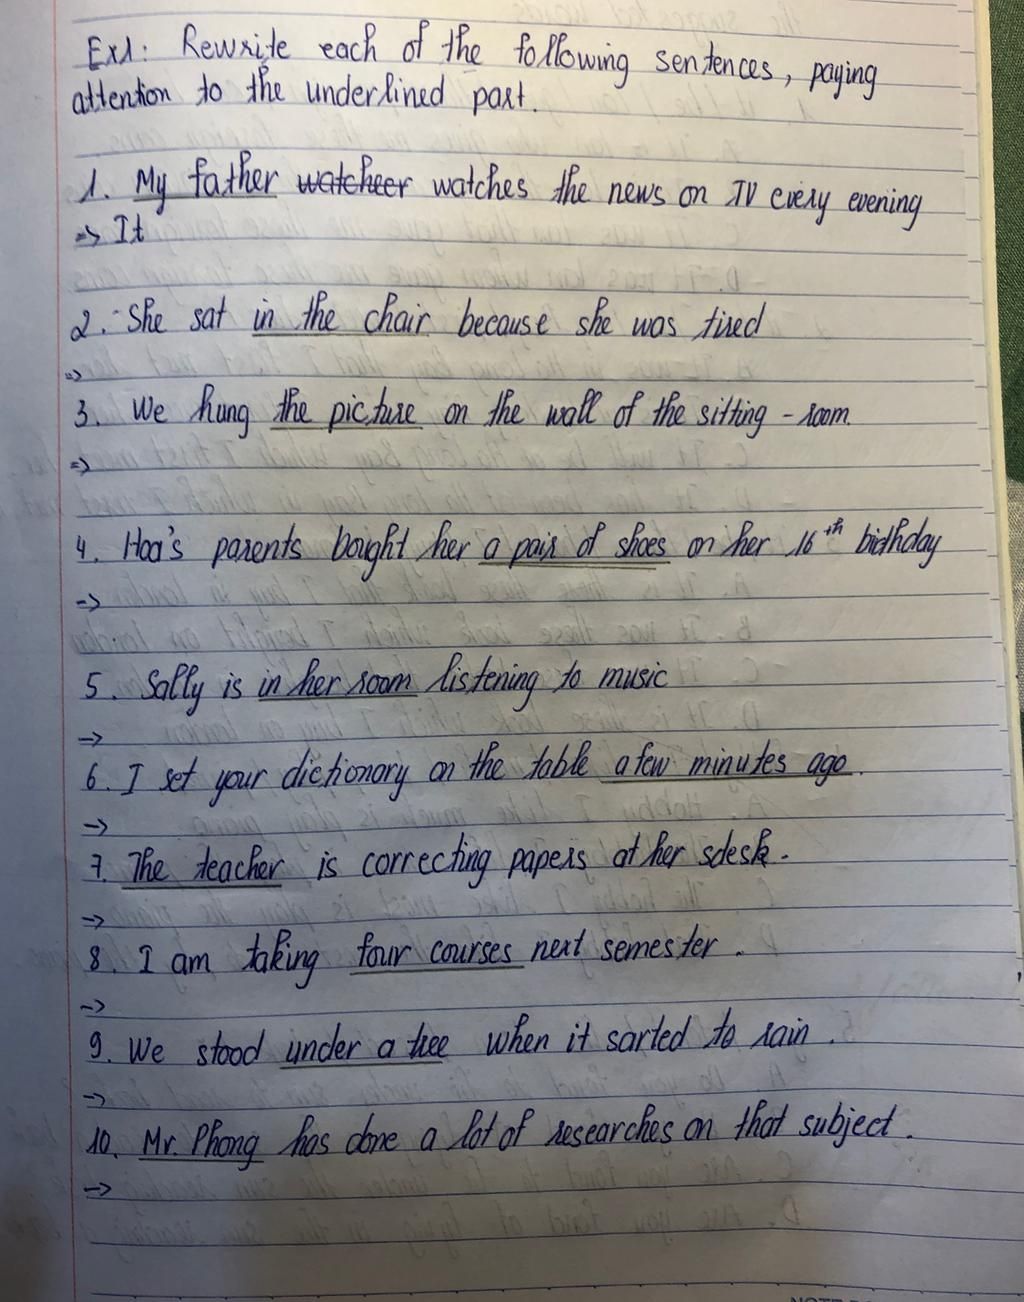 Ex1: Rewrite each of the following sentences, paying
attention to the underlined part.
1. My father watcheer watches the news on TV every evening
=> It
2. She sat in the chair because she was tired
=>
3. We hung the picture on the wall of the sitting - room.
=>
4. Hoa's parents bought her a pair of shoes on her 16th birthday
->
5. Sally is in her room listening to music
->
6. I set your dictionary on the table a few minutes ago.
->
7. The teacher is correcting papers at her sdesk.
->
8. I am taking four courses next semester.
->
9. We stood under a tree when it sarted to rain.
->
10. Mr. Phong has done a lot of researches on that subject.
->